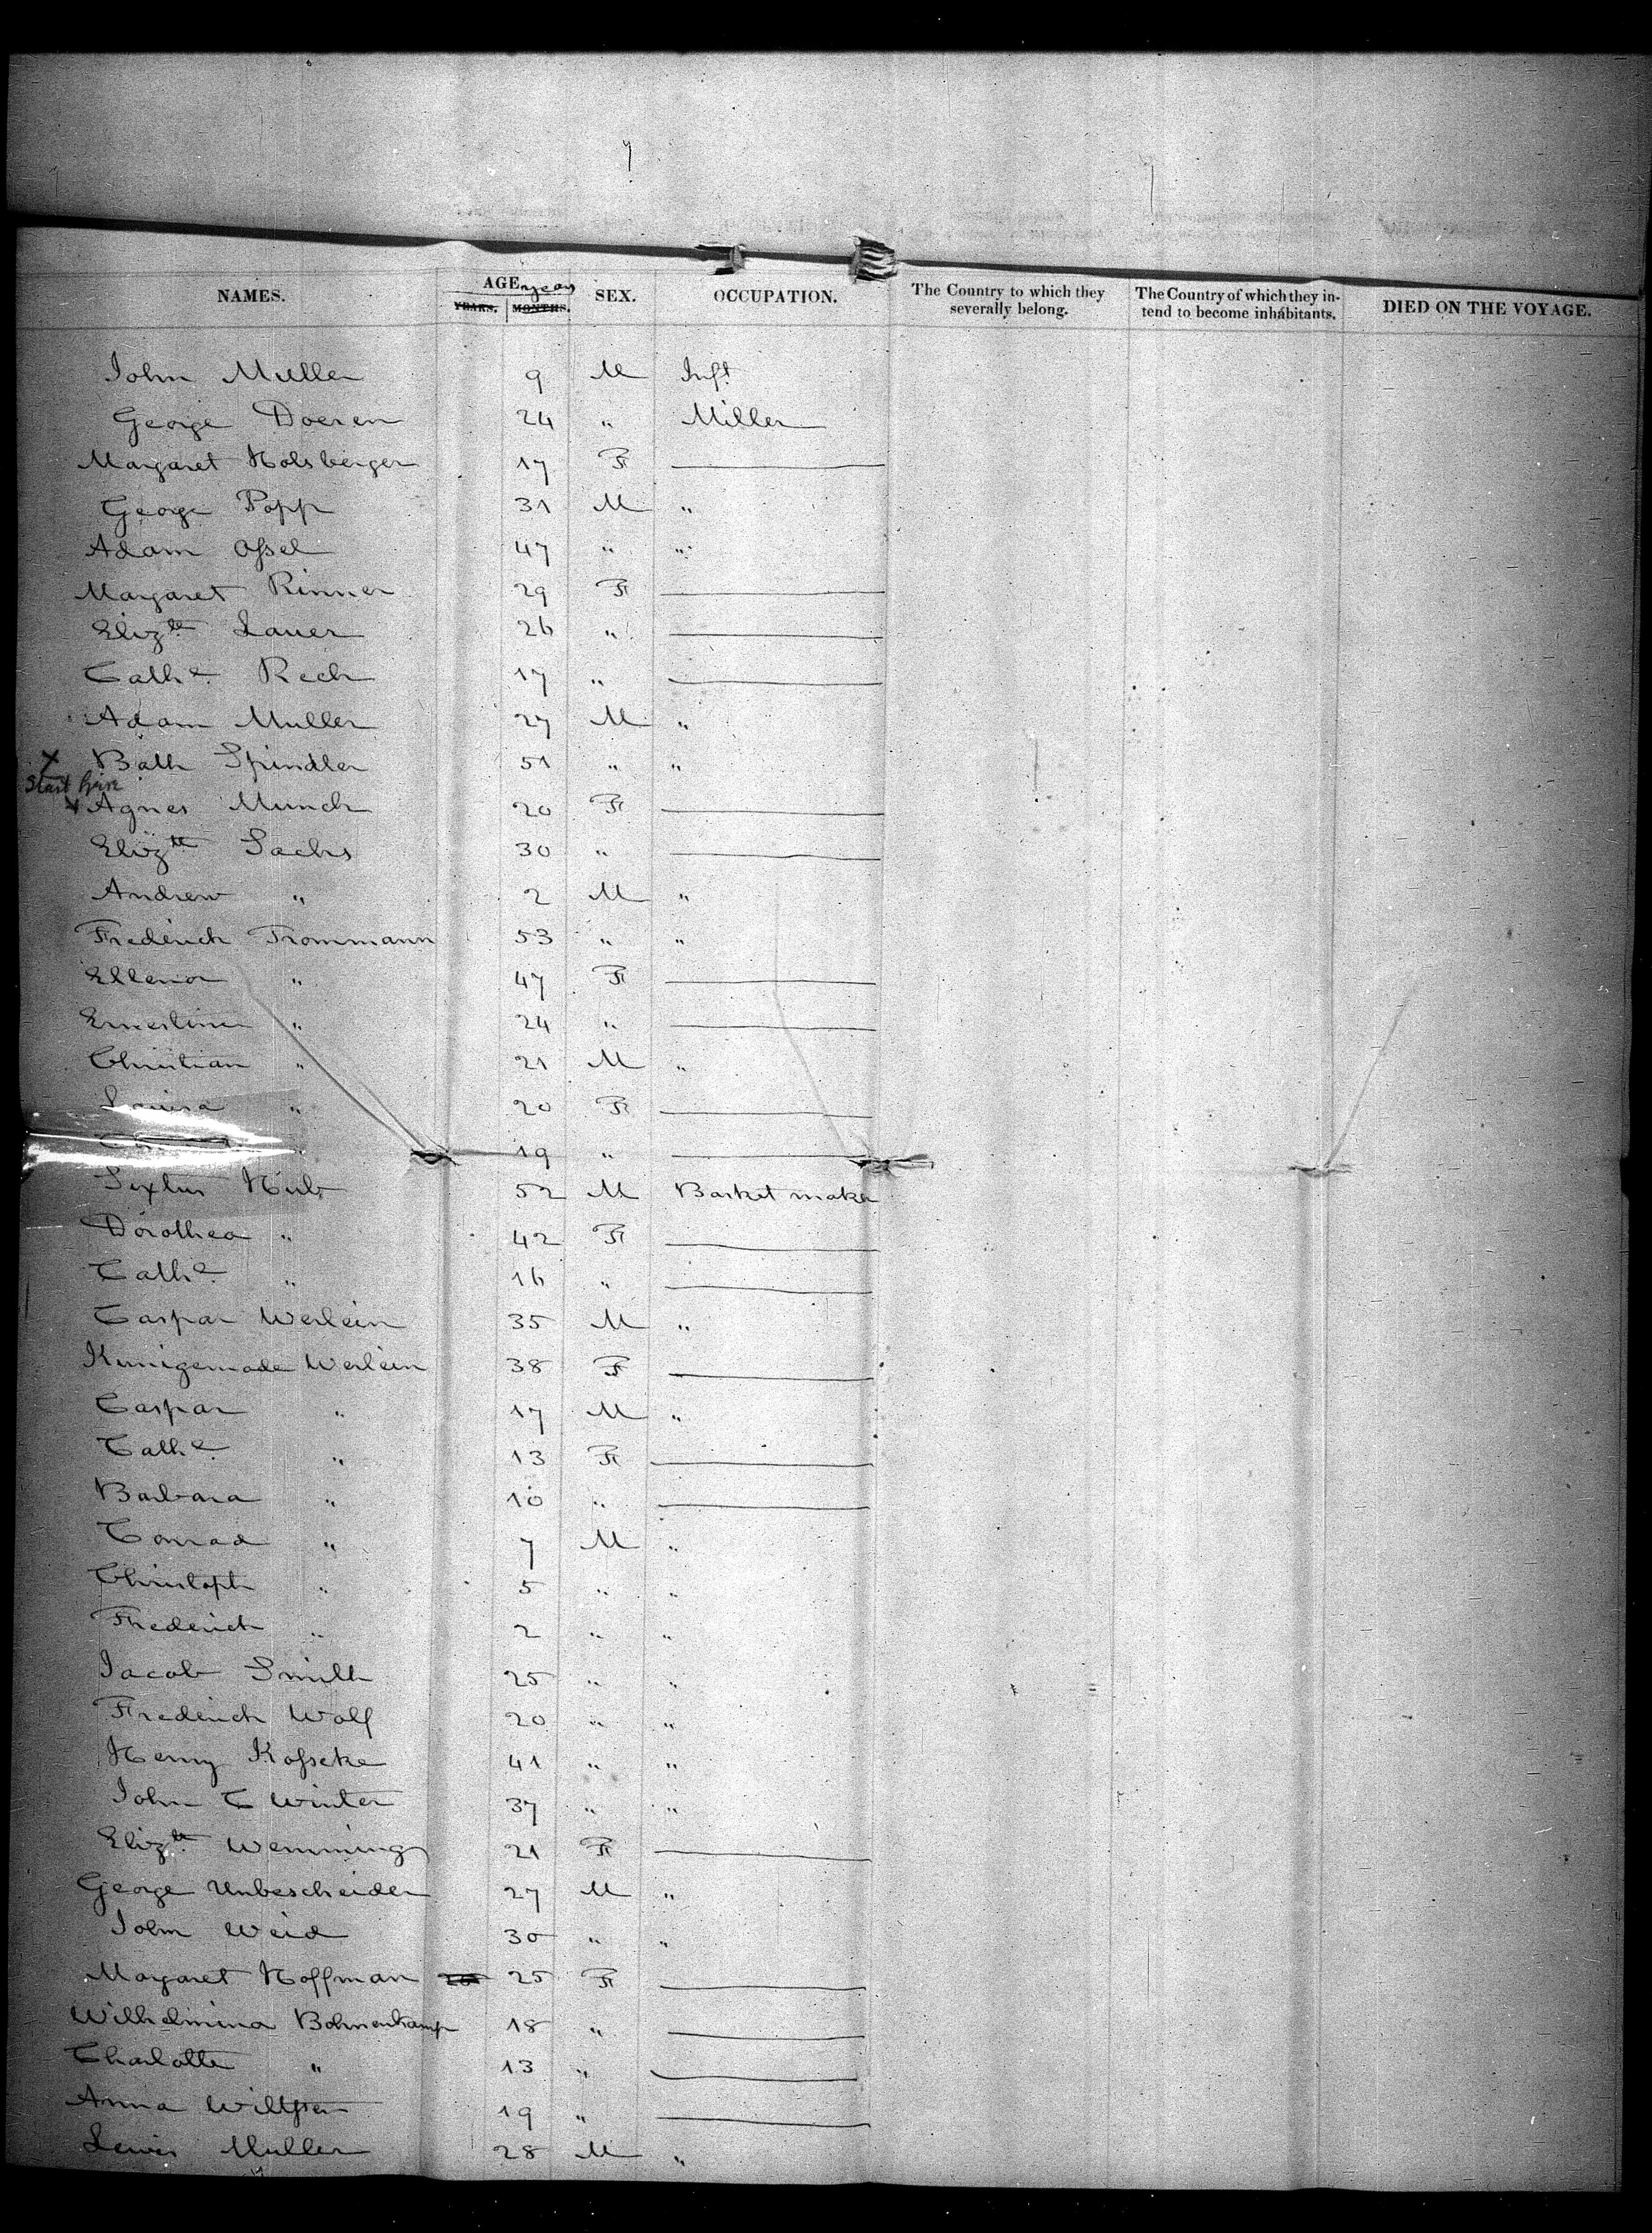 7
NAMES. AGE years YEARS. MONTHS. SEX. OCCUPATION. The Country to which they severally belong. The Country of which they intend to become inhabitants. DIED ON THE VOYAGE.
John Muller 9 M Inft
George Doeren 24 " Miller
Margaret Holsberger 17 F
George Popp 31 M "
Adam Ossel 47 " "
Margaret Rinner 29 F
Elizth Lauer 26 "
Cathe Rech 17 "
Adam Muller 27 M "
X Balth Spindler 51 " "
Start here
Agnes Munch 20 F
Elizth Sachs 30 "
Andrew " 2 M "
Frederich Trommann 53 " "
Ellenor " 47 F
Ernestine " 24 "
Christian " 21 M "
Louisa " 20 F
" 19 "
Sixtus 52 M Basket maker
Dorothea " 42 F
Cathe " 16 "
Caspar Werlein 35 M "
Kunigemade Werlein 38 F
Caspar " 17 M "
Cathe " 13 F
Barbara " 10 "
Conrad " 7 M "
Christoph " 5 " "
Frederich " 2 " "
Jacob Smith 25 " "
Frederich Wolf 20 " "
Henry Kosseke 41 " "
John C Winter 37 " "
Elizth Wemming 21 F
George Unbescheiden 27 M "
John Weid 30 " "
Margaret Hoffman 25 F
Wilhelmina Bohnenkamp 18 "
Charlotte " 13 "
Anna 19 "
Lewis Muller 28 M "